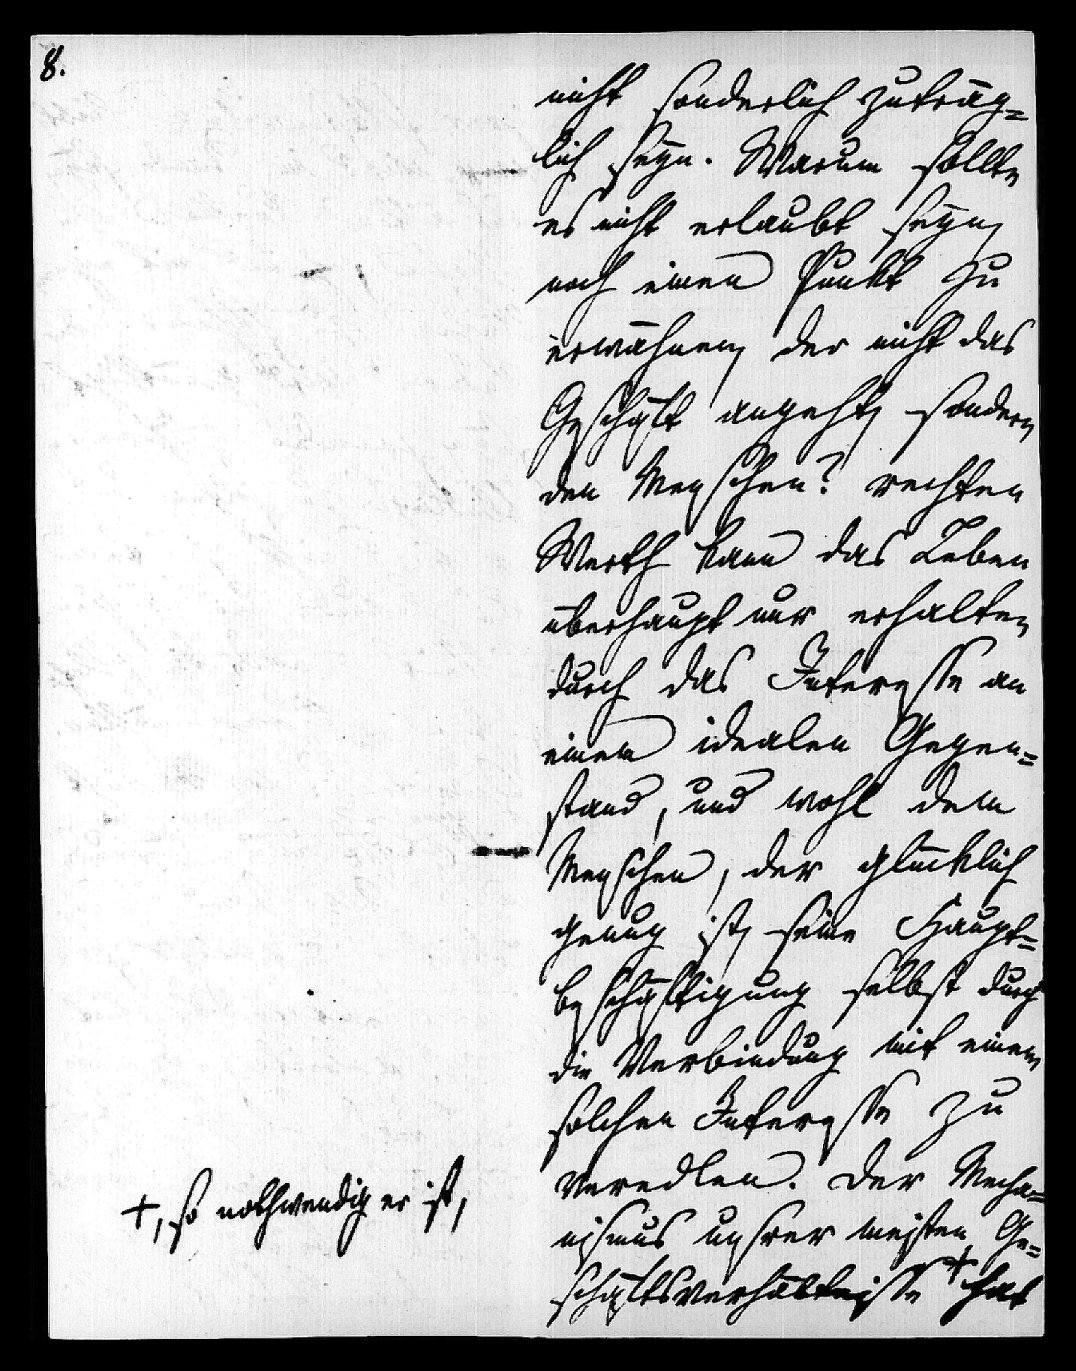 8.
nicht sonderlich zuträg=
lich seyn. Warum sollte
es nicht erlaubt seyn,
noch einen Punkt zu
erwähnen, der nicht das
Geschäft angeht, sondern
den Menschen? rechten
Werth kann das Leben
überhaupt nur erhalten
durch das Interesse an
einem idealen Gegen=
stand, und wohl dem
Menschen, der glücklich
genug ist, seine Haupt=
beschäftigung selbst durch
die Verbindung mit einem
solchen Interesse zu
veredlen. Der Mecha=
nismus unsrer meisten Ge=
schäftsverhältnisse + hat
+, so nothwendig er ist,